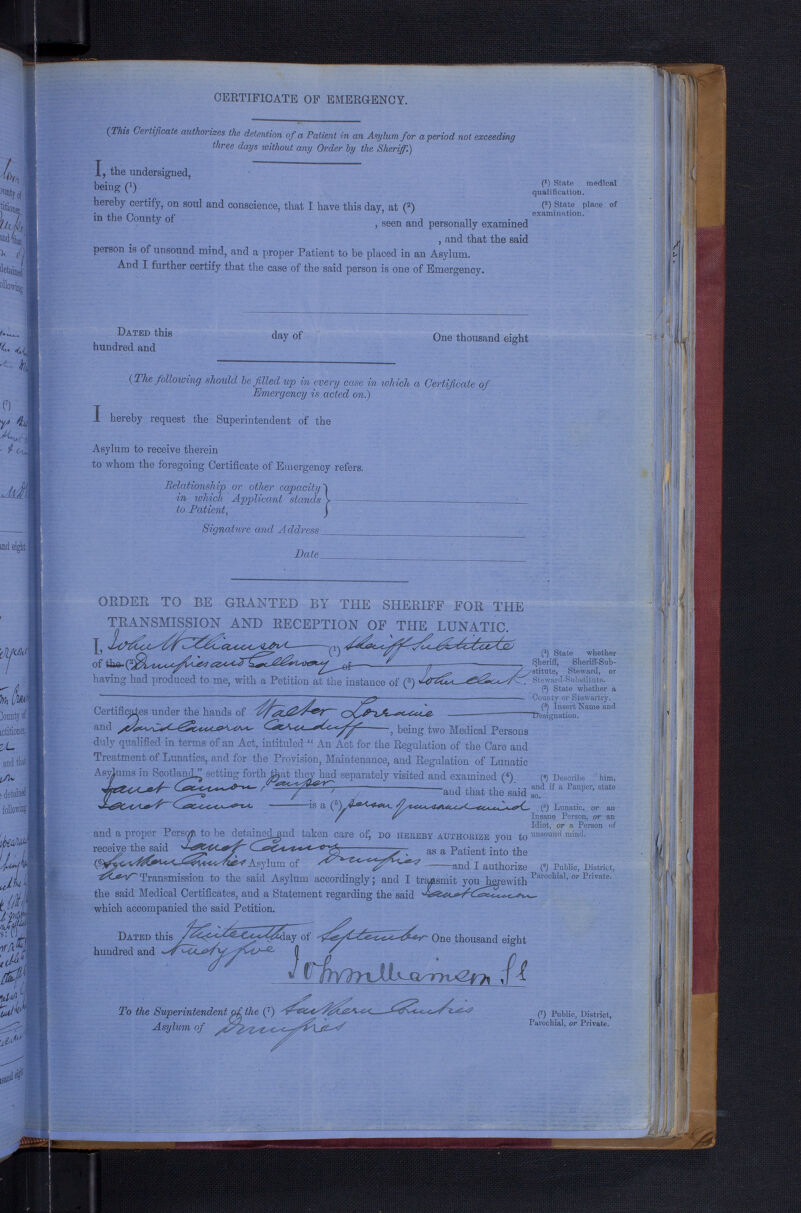 CERTIFICATE OF EMERGENCY.
(This Certificate authorizes the detention of a Patient in an Asylum for a period not exceeding
three days without any Order by the Sheriff.)
I, the undersigned,
being (1)
hereby certify, on soul and conscience, that I have this day, at (2)
in the County of , seen and personally examined
, and that the said
person is of unsound mind, and a proper Patient to be placed in an Asylum.
And I further certify that the case of the said person is one of Emergency.
(1) State medical
qualification.
(2) State place of
examination.
DATED this day of One thousand eight
hundred and
(The following should be filled up in every case in which a Certificate of
Emergency is acted on.)
I hereby request the Superintendent of the
Asylum to receive therein
to whom the foregoing Certificate of Emergency refers.
Relationship or other capacity
in which Applicant stands
to Patient,
Signature and Address
Date
ORDER TO BE GRANTED BY THE SHERIFF FOR THE
TRANSMISSION AND RECEPTION OF THE LUNATIC.
I, John Williamson (1) Sheriff Substitute
of the (2) Dumfries and Galloway of
having had produced to me, with a Petition at the instance of (3) John Clark
Certificates under the hands of Walter Lorraine
and David Cameron Carnduff, being two Medical Persons
duly qualified in terms of an Act, intituled "An Act for the Regulation of the Care and
Treatment of Lunatics, and for the Provision, Maintenance, and Regulation of Lunatic
Asylums in Scotland," setting forth that they had separately visited and examined (4).
Janet Cannon, Pauper, and that the said
Janet Cannon is a (5) person of unsound mind
and a proper Person to be detained and taken care of, DO HEREBY AUTHORIZE you to
receive the said Janet Cannon as a Patient into the
(6) Southern Counties Asylum of Dumfries and I authorize
her Transmission to the said Asylum accordingly; and I transmit you herewith
the said Medical Certificates, and a Statement regarding the said Janet Cannon
which accompanied the said Petition.
(1) State whether
Sheriff, Sheriff-Sub-
stitute, Steward, or
Steward-Substitute.
(2) State whether a
County or Stewartry.
(3) Insert Name and
Designation.
(4) Describe him,
and if a Pauper, state
so.
(5) Lunatic, or an
Insane Person, or an
Idiot, or a Person of
unsound mind.
(6) Public, District,
Parochial, or Private.
DATED this Thirteenth day of September One thousand eight
hundred and Ninety five
John Williamson S.S.
To the Superintendent of the (7) Southern Counties
Asylum of Dumfries
(7) Public, District,
Parochial, or Private.